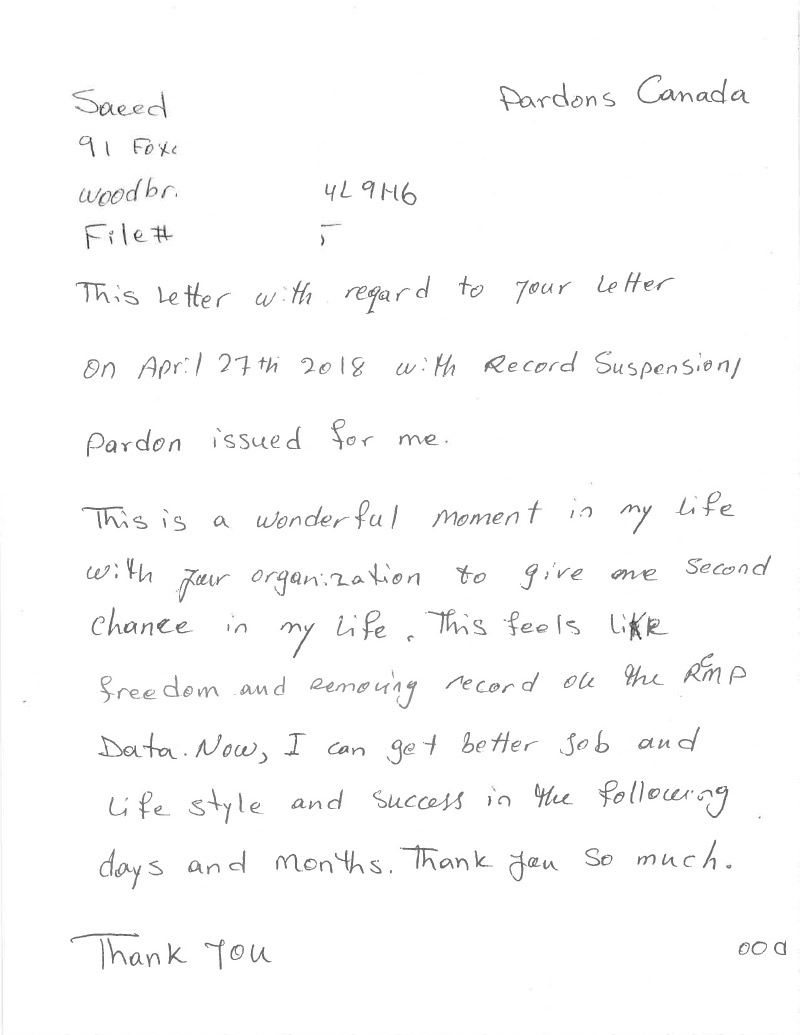 Saeed
Pardons Canada
91 Foxc
woodbr.
4L 9H6
File#
This Letter with regard to your Letter
on April 27th 2018 with Record Suspension/
Pardon issued for me.
This is a wonderful moment in my life
with your organization to give me second
chance in my life. This feels like
freedom and removing record on the RCMP
Data. Now, I can get better job and
Life style and success in the following
days and months. Thank you so much.
Thank You